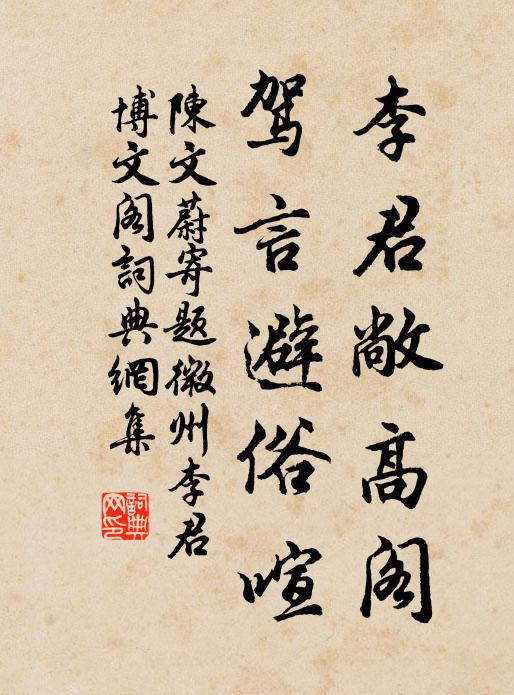 李君敞高阁
驾言避俗喧
陳文蔚寄題徽州李君
博文阁詞典網集
詞典網印